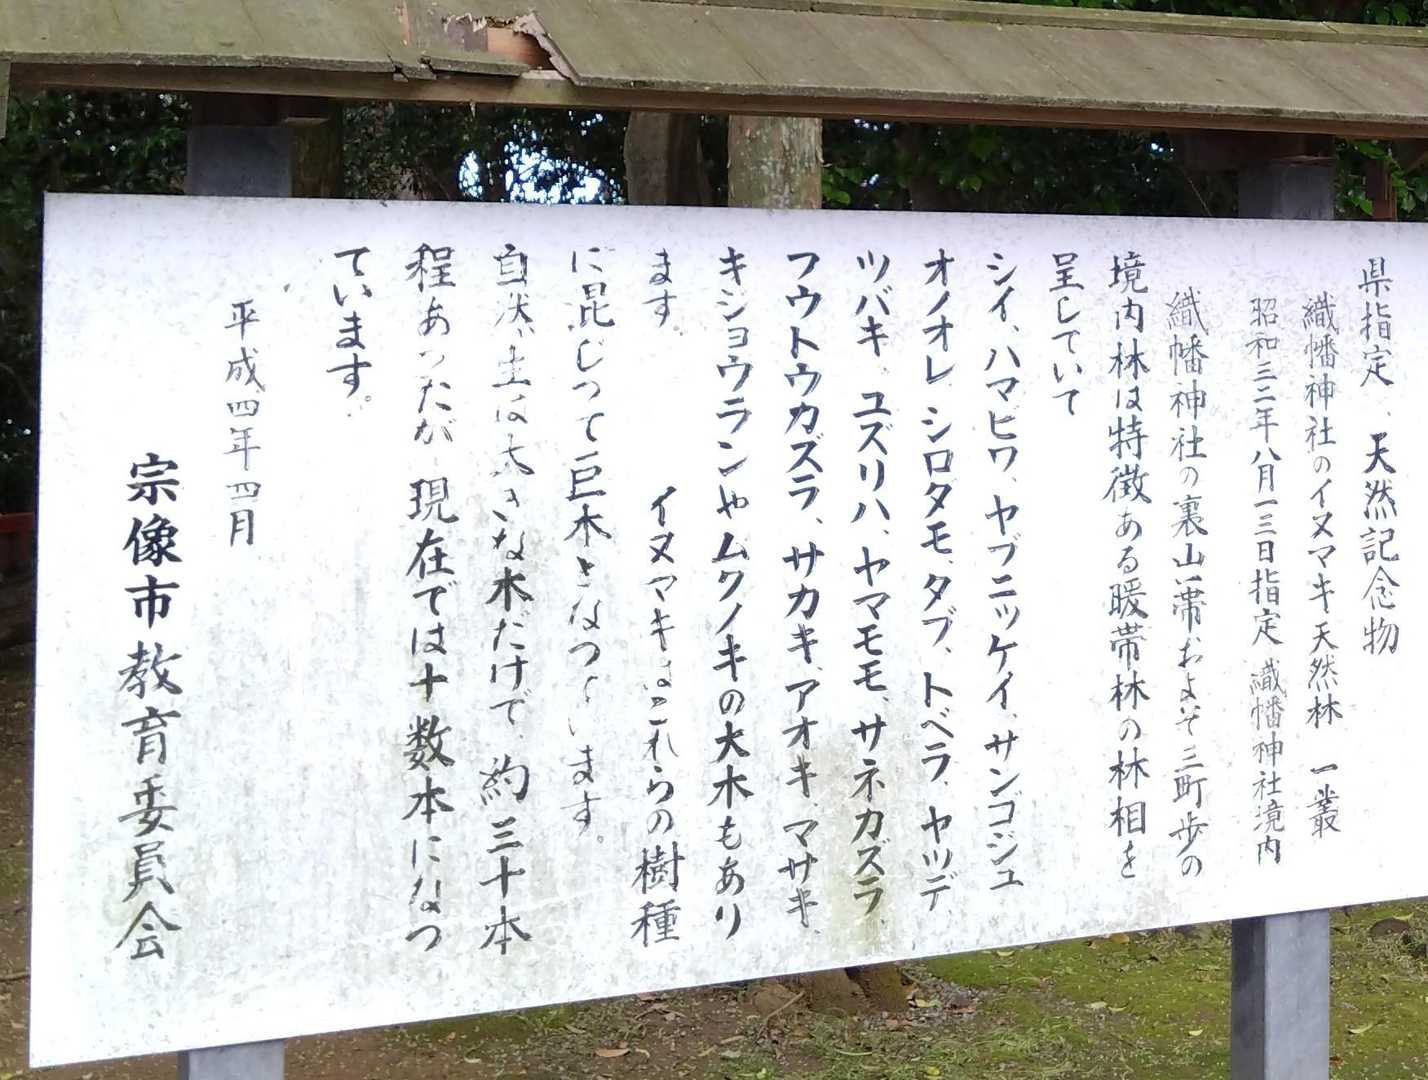 県指定、天然記念物
織幡神社のイヌマキ天然林 一叢
昭和三二年八月一三日指定 織幡神社境内
織幡神社の裏山一帯およそ三町歩の
境内林は特徴ある暖帯林の林相を
呈していて
シイ、ハマビワ、ヤブニッケイ、サンゴジュ
オノオレ シロダモ、タブ、トベラ、ヤツデ
ツバキ、ユズリハ、ヤマモモ、サネカズラ、
フウトウカズラ、サカキ、アオキ、マサキ、
キジョウランやムクノキの大木もあり
ます。
イヌマキはこれらの樹種
に混じって巨木となっています。
自然生は大きな木だけで、約三十本
程あったが 現在では十数本になっ
ています。
平成四年四月
宗像市教育委員会